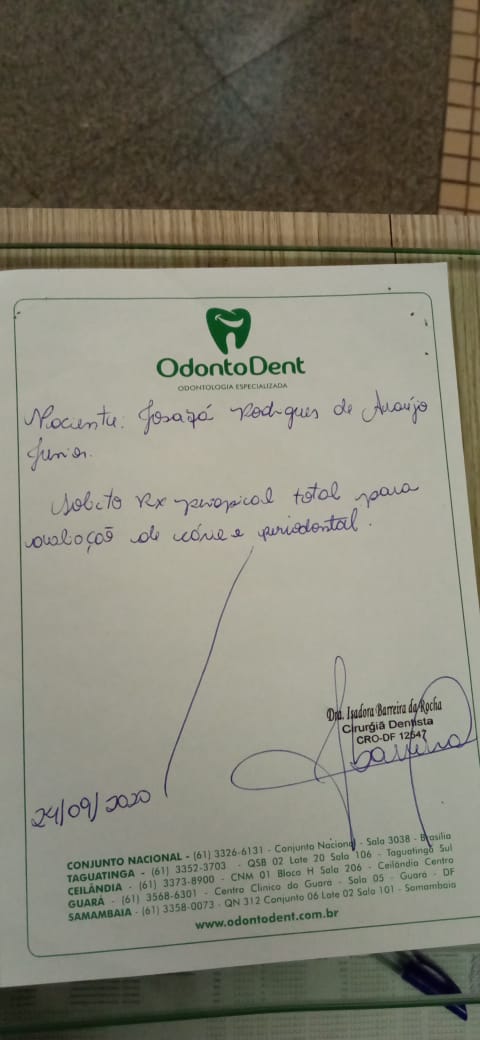 OdontoDent
ODONTOLOGIA ESPECIALIZADA
Paciente: Josafá Rodrigues de Araújo
Junior.
Solicito Rx periapical total para
avaliação de cárie e periodontal.
Dra. Isadora Barreira da Rocha
Cirurgiã Dentista
CRO-DF 12547
24/09/2020
CONJUNTO NACIONAL - (61) 3326-6131 - Conjunto Nacional - Sala 3038 - Brasília
TAGUATINGA - (61) 3352-3703 - QSB 02 Lote 20 Sala 106 - Taguatinga Sul
CEILÂNDIA - (61) 3373-8900 - CNM 01 Bloco H Sala 206 - Ceilândia Centro
GUARÁ - (61) 3568-6301 - Centro Clínico do Guará - Sala 05 - Guará - DF
SAMAMBAIA - (61) 3358-0073 - QN 312 Conjunto 06 Lote 02 Sala 101 - Samambaia
www.odontodent.com.br